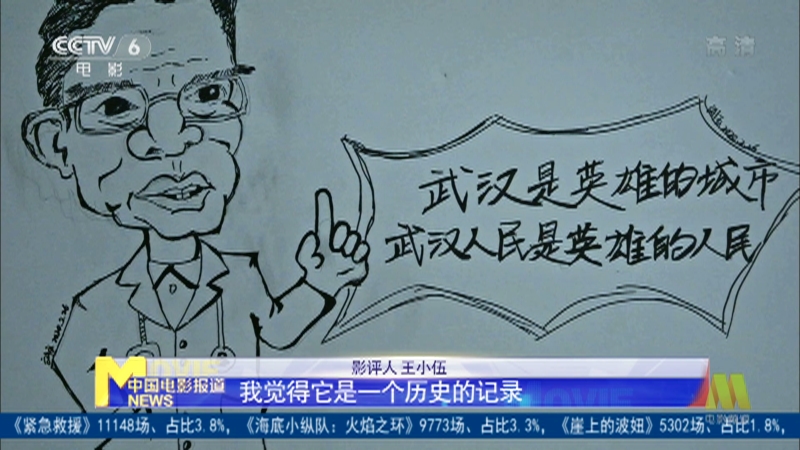 CCTV 6
电影
高清
武汉是英雄的城市
武汉人民是英雄的人民
影评人 王小伍
MOVIE
中国电影报道
NEWS
我觉得它是一个历史的记录
《紧急救援》11148场、占比3.8%，《海底小纵队：火焰之环》9773场、占比3.3%，《崖上的波妞》5302场、占比1.8%，